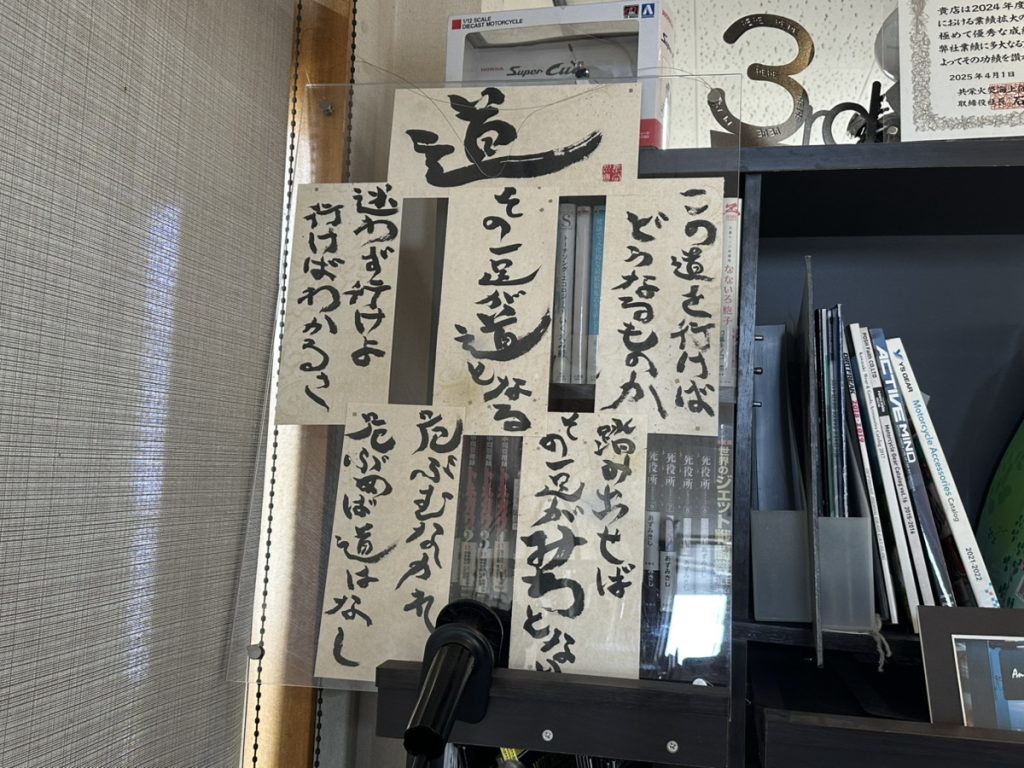 道
この道を行けば
どうなるものか
危ぶむなかれ
危ぶめば道はなし
踏み出せば
その一足がみちとなり
その一足が道となる
迷わず行けよ
行けばわかるさ
1/12 SCALE
DIECAST MOTORCYCLE
HONDA Super Cub
3rd
貴店は2024年度
における業績拡大の
極めて優秀な成績
弊社業績に多大なる
よってその功績を讃
2025年4月1日
共栄火災海上
取締役社長
なないろ胞子
死役所
死役所
死役所
死役所
あずみきし
あずみきし
世界のジェット
ACTIVE MIND
Y'S GEAR
Motorcycle Accessories Catalog
2021-2022